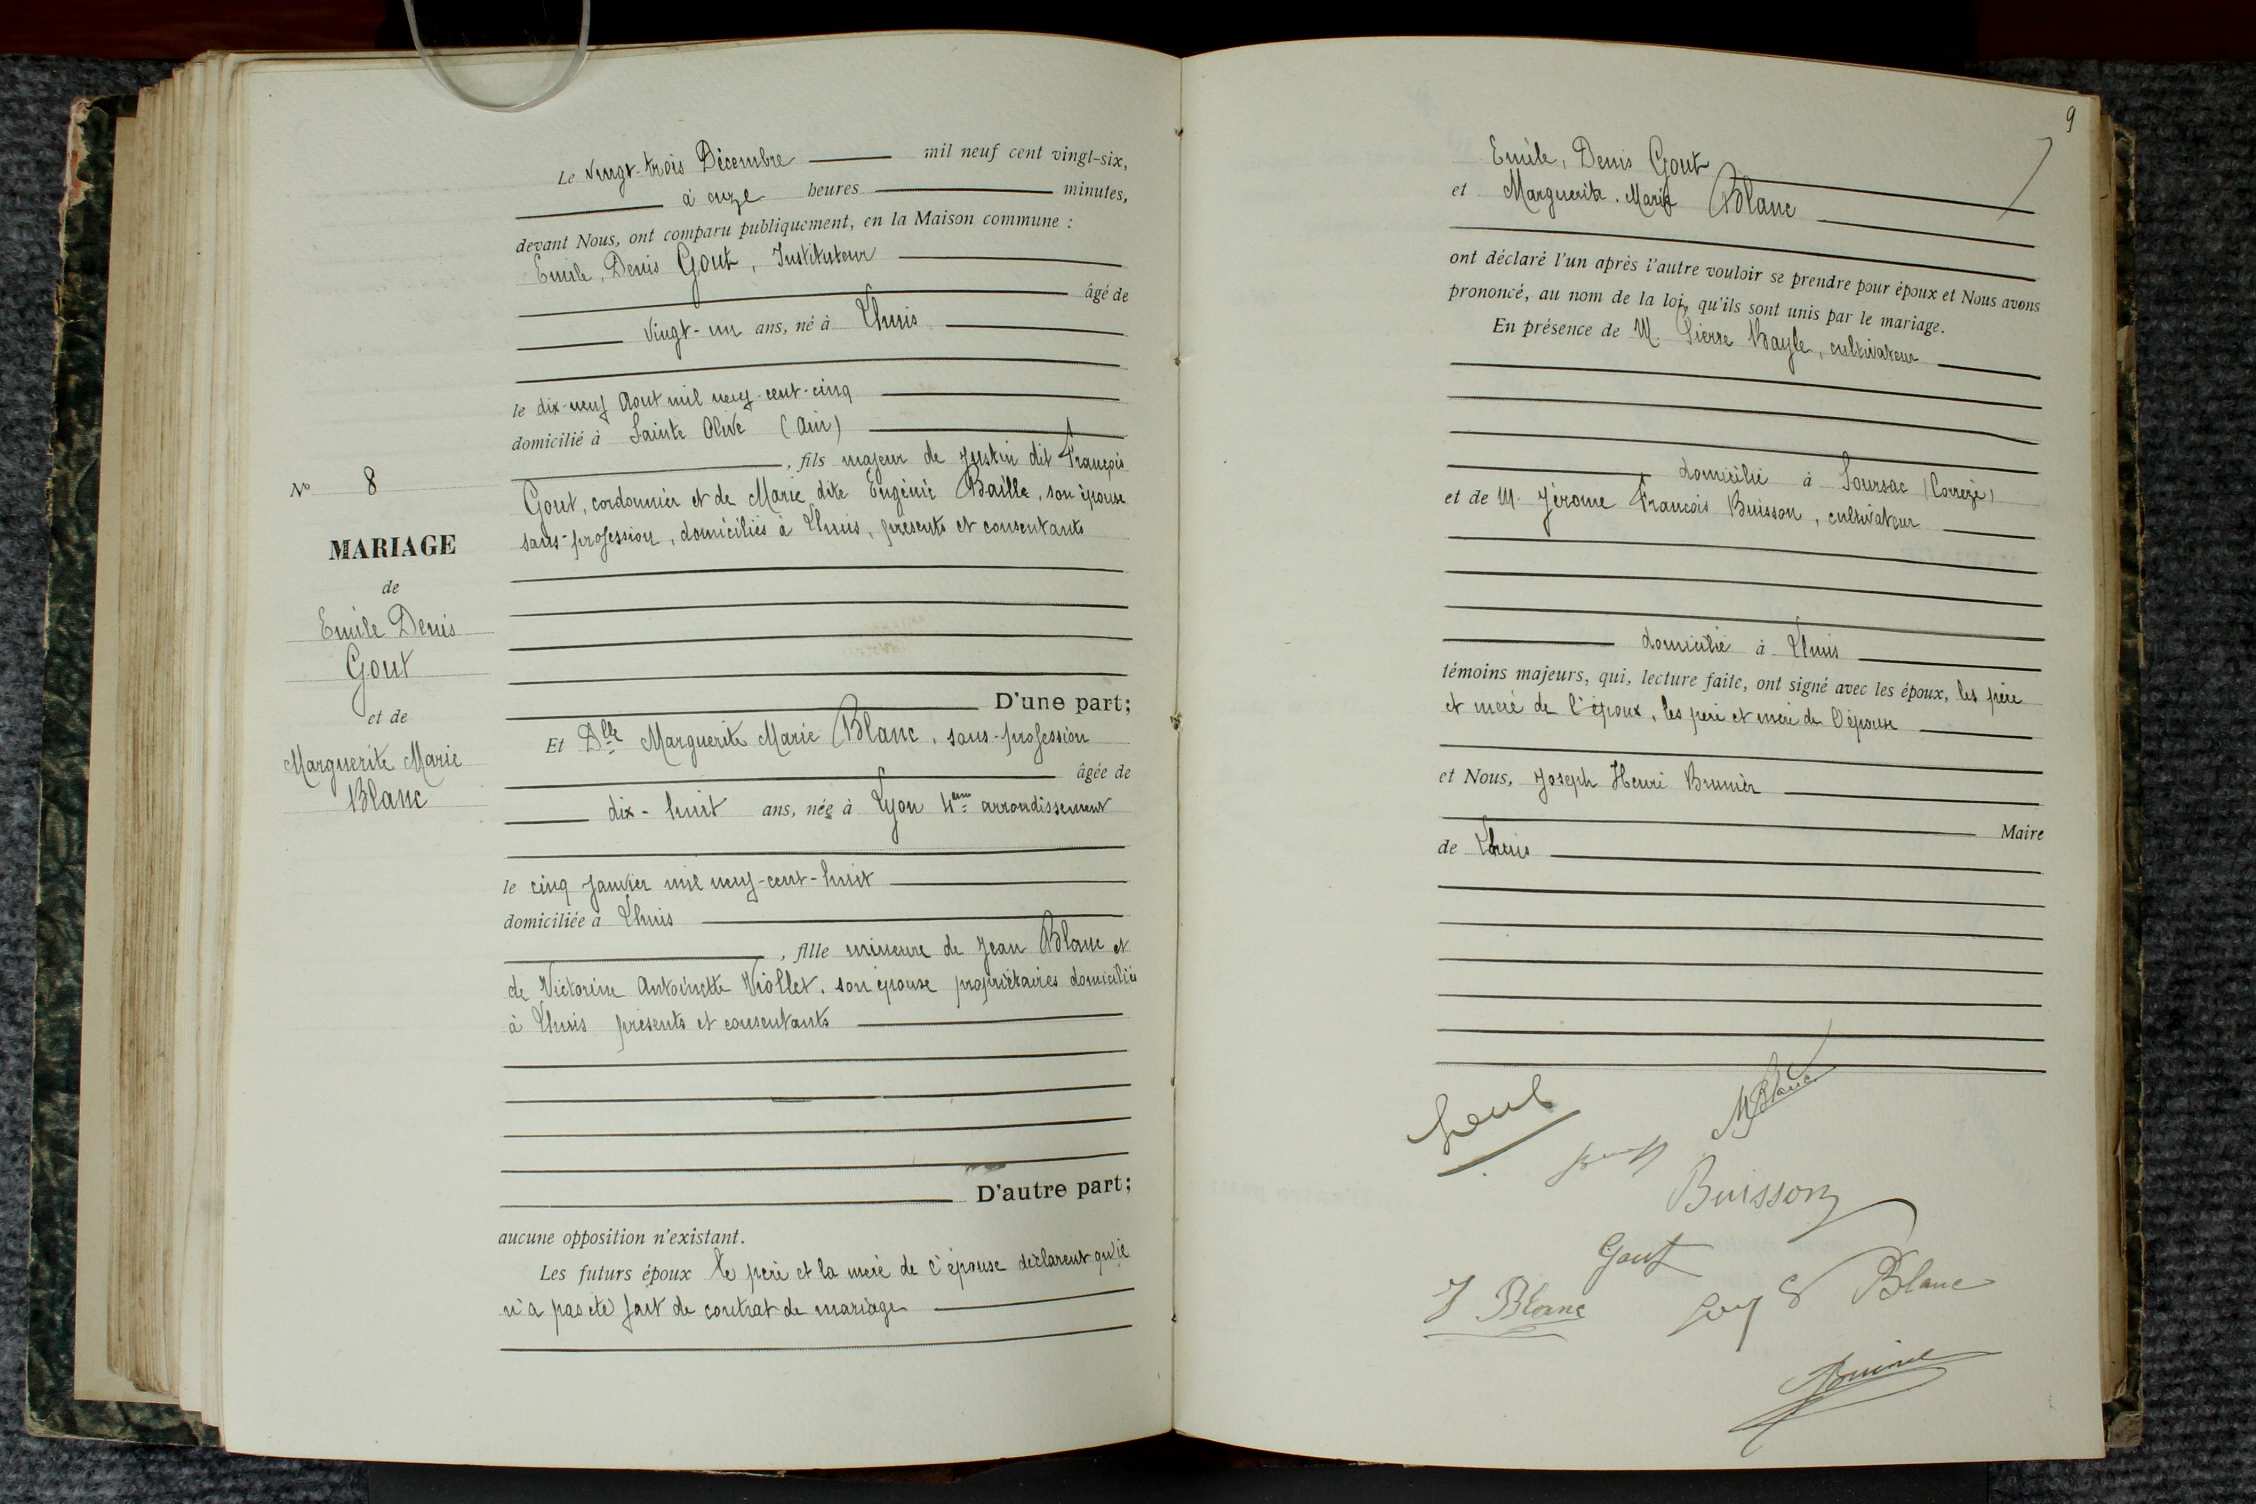 N° 8
MARIAGE
de
Emile Denis
Gout
et de
Marguerite Marie
Blanc
Le Vingt-trois Décembre mil neuf cent vingt-six,
à onze heures minutes,
devant Nous, ont comparu publiquement, en la Maison commune :
Emile, Denis Gout, Instituteur
âgé de
vingt-un ans, né à Thuis
le dix-neuf Aout mil neuf-cent-cinq
domicilié à Sainte Olive (Ain)
, fils majeur de Justin dit François
Gout, cordonnier et de Marie dite Eugénie Baille, son épouse
sans-profession, domiciliés à Thuis, présents et consentants
D'une part;
Et Dlle Marguerite Marie Blanc, sans-profession
âgée de
dix-huit ans, née à Lyon 4eme arrondissement
le cinq Janvier mil neuf-cent-huit
domiciliée à Thuis
, fille mineure de Jean Blanc et
de Victorine Antoinette Viollet, son épouse propriétaires domiciliés
à Thuis présents et consentants
D'autre part;
aucune opposition n'existant.
Les futurs époux le père et la mère de l'épouse déclarent qu'il
n'a pas été fait de contrat de mariage
9
Emile, Denis Gout
et Marguerite. Marie Blanc
ont déclaré l'un après l'autre vouloir se prendre pour époux et Nous avons
prononcé, au nom de la loi, qu'ils sont unis par le mariage.
En présence de M. Pierre Bayle, cultivateur
domicilié à Soursac (Corrèze)
et de M. Jérome François Buisson, cultivateur
domicilié à Thuis
témoins majeurs, qui, lecture faite, ont signé avec les époux, les père
et mère de l'époux, les père et mère de l'épouse
et Nous, Joseph Henri Brunier
Maire
de Thuis
Gout
M Blanc
Buisson
Gout
J Blanc
Blanc